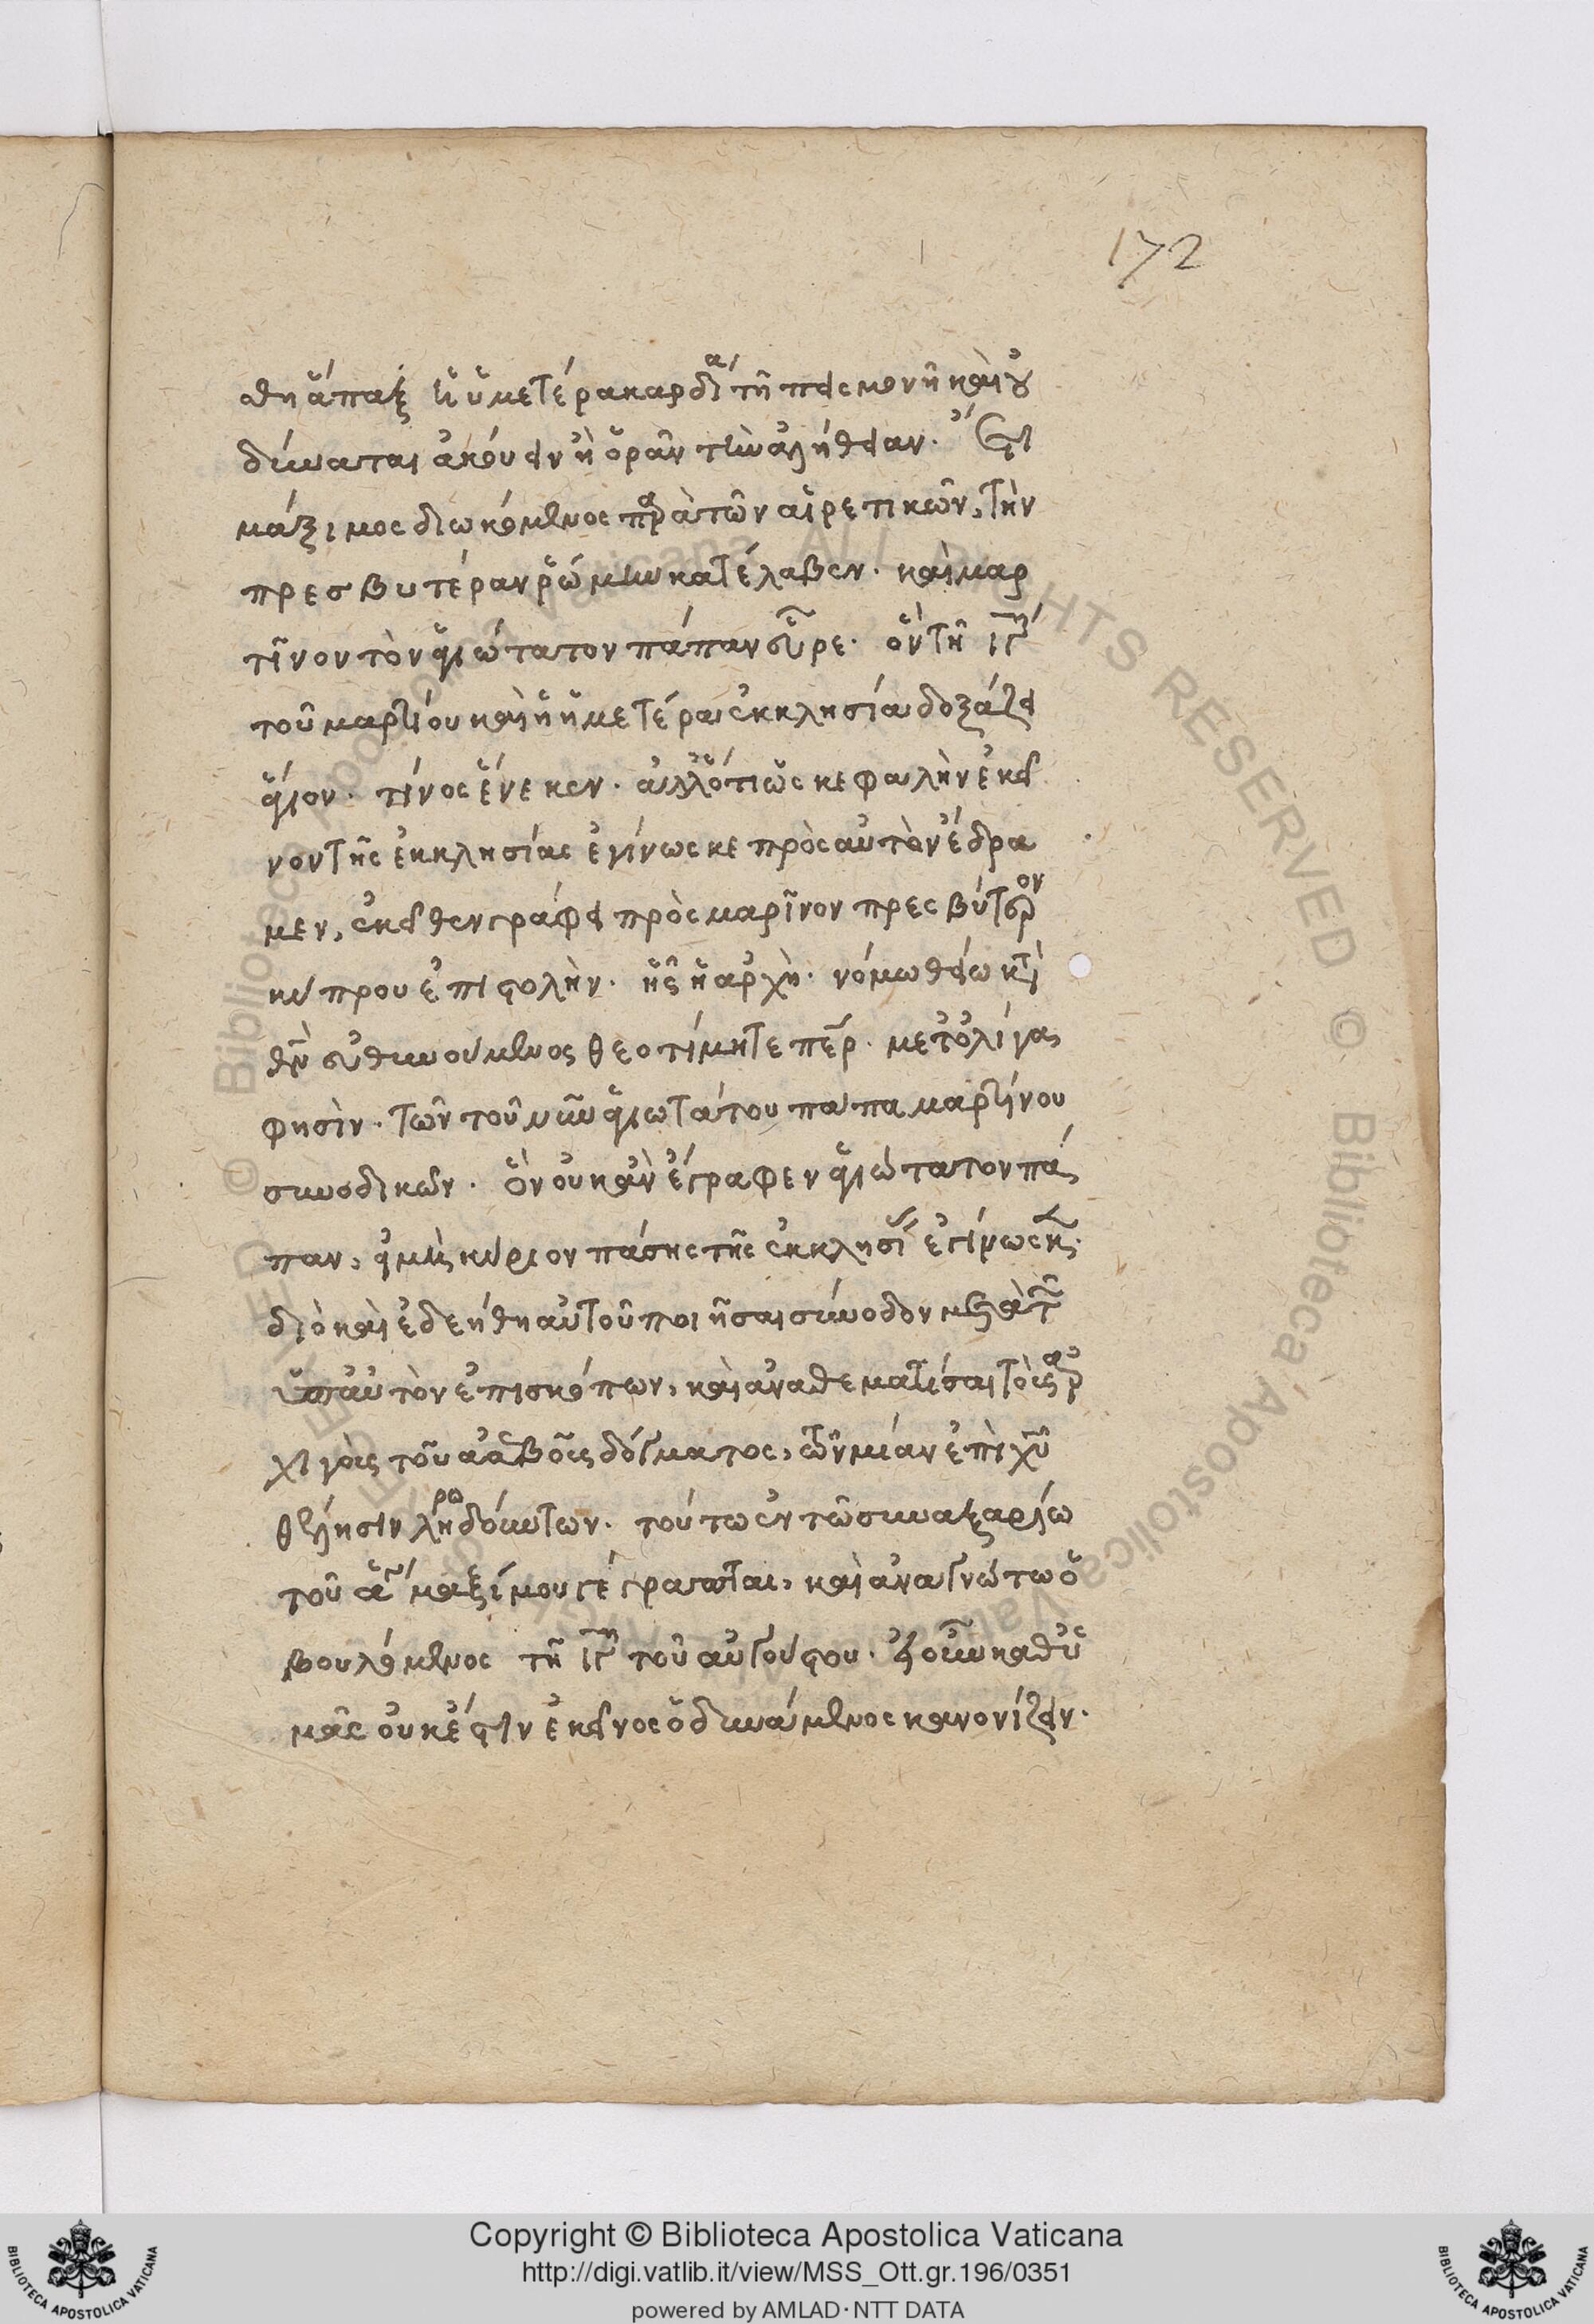 172
θη ἅπαξ ἡ ὑμετέρα καρδία τῇ πεισμονῇ καὶ οὐ
δύναται ἀκούειν ἢ ὁρᾶν τὴν ἀλήθειαν. Ἔτι
μάξιμος διωκόμενος παρὰ τῶν αἱρετικῶν, τὴν
πρεσβυτέραν ῥώμην κατέλαβεν. καὶ μαρ
τῖνον τὸν ἁγιώτατον πάπαν εὗρε. ὃν τῇ ιγῃ
τοῦ μαρτίου καὶ ἡ ἡμετέρα ἐκκλησία δοξάζει
ἅγιον. τίνος ἕνεκεν. ἀλλ' ὅτι ὡς κεφαλὴν ἐκεῖ
νον τῆς ἐκκλησίας ἐγίνωσκε πρὸς αὐτὸν ἔδρα
μεν, ἐκεῖθεν γράφει πρὸς μαρῖνον πρεσβύτερον
κύπρου ἐπιστολὴν. ἧς ἡ ἀρχὴ. νόμω θείω
θεὸν εὐθυνούμενος θεοτίμητε πάτερ. μετ' ὀλίγας
φησὶν. τῶν τοῦ νῦν ἁγιωτάτου πάπα μαρτίνου
συνοδικῶν. ὃν οὐκ ἂν ἔγραφεν ἁγιώτατον πά
παν, εἰ μὴ κύριον πάσης τῆς ἐκκλησίας ἐγίνωσκεν.
διὸ καὶ ἐδεήθη αὐτοῦ ποιῆσαι σύνοδον μετὰ τῶν
ὑπ' αὐτὸν ἐπισκόπων, καὶ ἀναθεματίσαι τοῖς ἀρ
χηγοῖς τοῦ ἀσεβοῖς δόγματος, τῶν μίαν ἐπὶ χῦ
θέλησιν ληρωδούντων. τοῦτω ἐν τῶ συναξαρίω
τοῦ ἁγίου μαξίμου γέγραπται, καὶ ἀναγνώτω ὁ
βουλόμενος τῇ ιγῃ τοῦ αὐγούστου. εἰ οὖν καθ' ὑ
μᾶς οὐκ ἔστιν ἐκεῖνος ὁ δυνάμενος κανονίζειν.
Copyright © Biblioteca Apostolica Vaticana
http://digi.vatlib.it/view/MSS_Ott.gr.196/0351
powered by AMLAD·NTT DATA